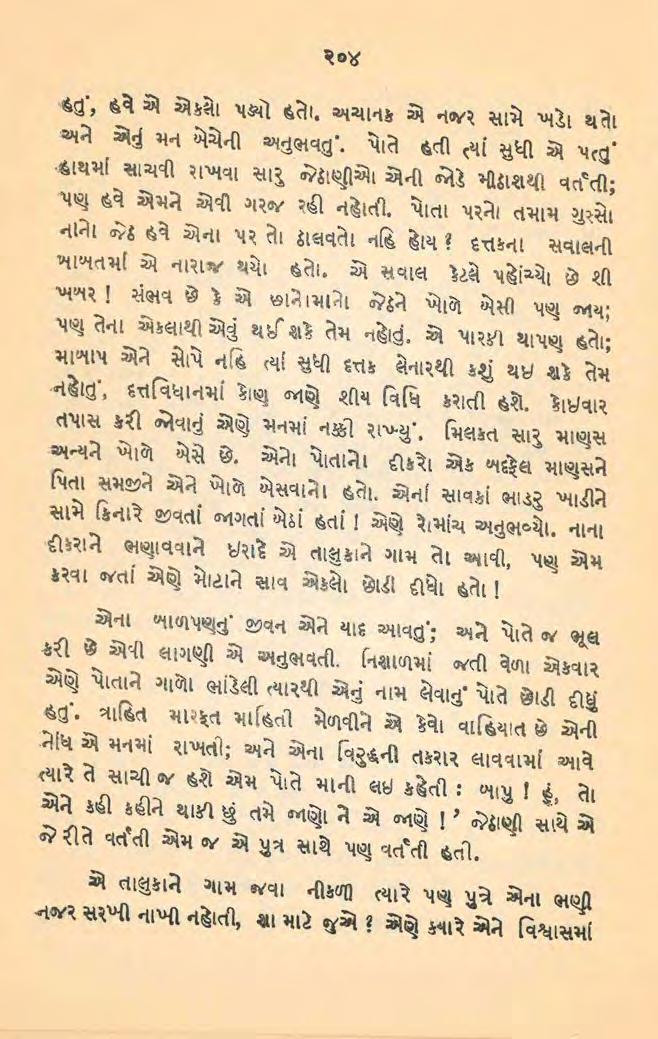 ૨૦૪
હતું, હવે એ એકલો પડ્યો હતો. અચાનક એ નજર સામે ખડો થતો
અને એનું મન બેચેની અનુભવતું. પોતે હતી ત્યાં સુધી એ પત્તું
હાથમાં સાચવી રાખવા સારુ જેઠાણીઓ એની જોડે મીઠાશથી વર્તતી;
પણ હવે એમને એવી ગરજ રહી નહોતી. પોતા પરનો તમામ ગુસ્સો
નાનો જેઠ હવે એના પર તો ઠાલવતો નહિ હોય ? દત્તકના સવાલની
બાબતમાં એ નારાજ થયો હતો. એ સવાલ કેટલે પહોંચ્યો છે શી
ખબર ! સંભવ છે કે એ છાનોમાનો જેઠને ખોળે બેસી પણ જાય;
પણ તેના એકલાથી એવું થઈ શકે તેમ નહોતું. એ પારકી થાપણ હતો;
માબાપ એને સોપે નહિ ત્યાં સુધી દત્તક લેનારથી કશું થઇ શકે તેમ
નહોતું, દત્તવિધાનમાં કોણ જાણે શીય વિધિ કરાતી હશે. કોઇવાર
તપાસ કરી જોવાનું એણે મનમાં નક્કી રાખ્યું. મિલકત સારુ માણસ
અન્યને ખોળે બેસે છે. એનો પોતાનો દીકરો એક બદફેલ માણસને
પિતા સમજીને એને ખોળે બેસવાનો હતો. એનાં સાવકાં ભાડરુ ખાડીને
સામે કિનારે જીવતાં જાગતાં બેઠાં હતાં ! એણે રોમાંચ અનુભવ્યો. નાના
દીકરાને ભણાવવાને ઇરાદે એ તાલુકાને ગામ તો આવી, પણ એમ
કરવા જતાં એણે મોટાને સાવ એકલો છોડી દીધો હતો !
એના બાળપણનું જીવન એને યાદ આવતું; અને પોતે જ ભૂલ
કરી છે એવી લાગણી એ અનુભવતી. નિશાળમાં જતી વેળા એકવાર
એણે પોતાને ગાળો ભાંડેલી ત્યારથી એનું નામ લેવાનું પોતે છોડી દીધું
હતું. ત્રાહિત મારફત માહિતી મેળવીને એ કેવો વાહિયાત છે એની
નોંધ એ મનમાં રાખતી; અને એના વિરુદ્ધની તકરાર લાવવામાં આવે
ત્યારે તે સાચી જ હશે એમ પોતે માની લઇ કહેતી : બાપુ ! હું, તો
એને કહી કહીને થાકી છું તમે જાણો ને એ જાણે !’ જેઠાણી સાથે એ
જે રીતે વર્તતી એમ જ એ પુત્ર સાથે પણ વર્તતી હતી.
એ તાલુકાને ગામ જવા નીકળી ત્યારે પણ પુત્રે એના ભણી
નજર સરખી નાખી નહોતી, શા માટે જુએ ? એણે ક્યારે એને વિશ્વાસમાં